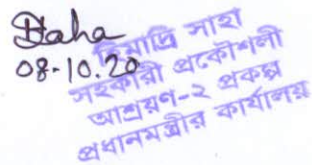 Saha
08-10.20
হিমাদ্রি সাহা
সহকারী প্রকৌশলী
আশ্রয়ণ-২ প্রকল্প
প্রধানমন্ত্রীর কার্যালয়